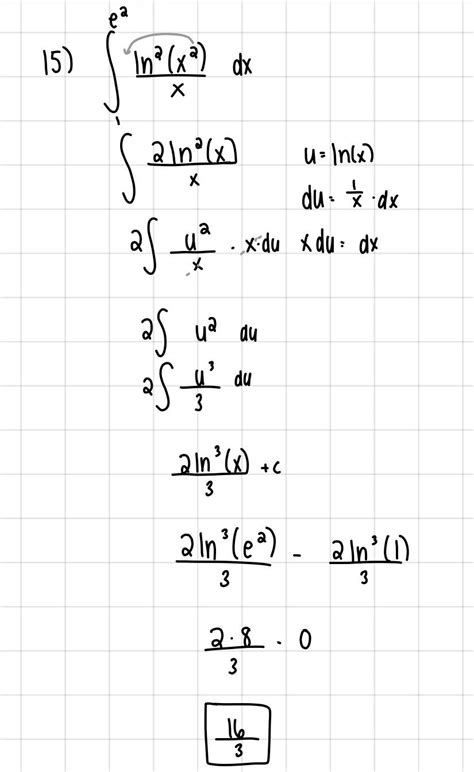 15) ∫₁^{e²} ln²(x²)/x dx
∫ 2ln²(x)/x u = ln(x)
du = 1/x · dx
2∫ u²/x · x·du xdu = dx
2∫ u² du
2∫ u³/3 du
2ln³(x)/3 + c
2ln³(e²)/3 - 2ln³(1)/3
2·8/3 - 0
16/3